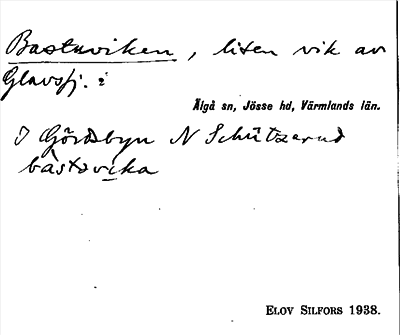 Bastuviken, liten vik av
Glavsfj. i
Älgå sn, Jösse hd, Värmlands län.
I Gördsbyn N Schützerud
bastovika
ELOV SILFORS 1938.